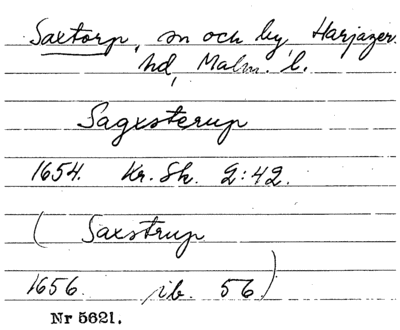 Saxtorp, sn och by, Harjager.
hd, Malm. l.
Sagxsterup
1654. Kr. Sk. 2:42.
( Saxstrup
1656. ib. 56 )
Nr 5621.